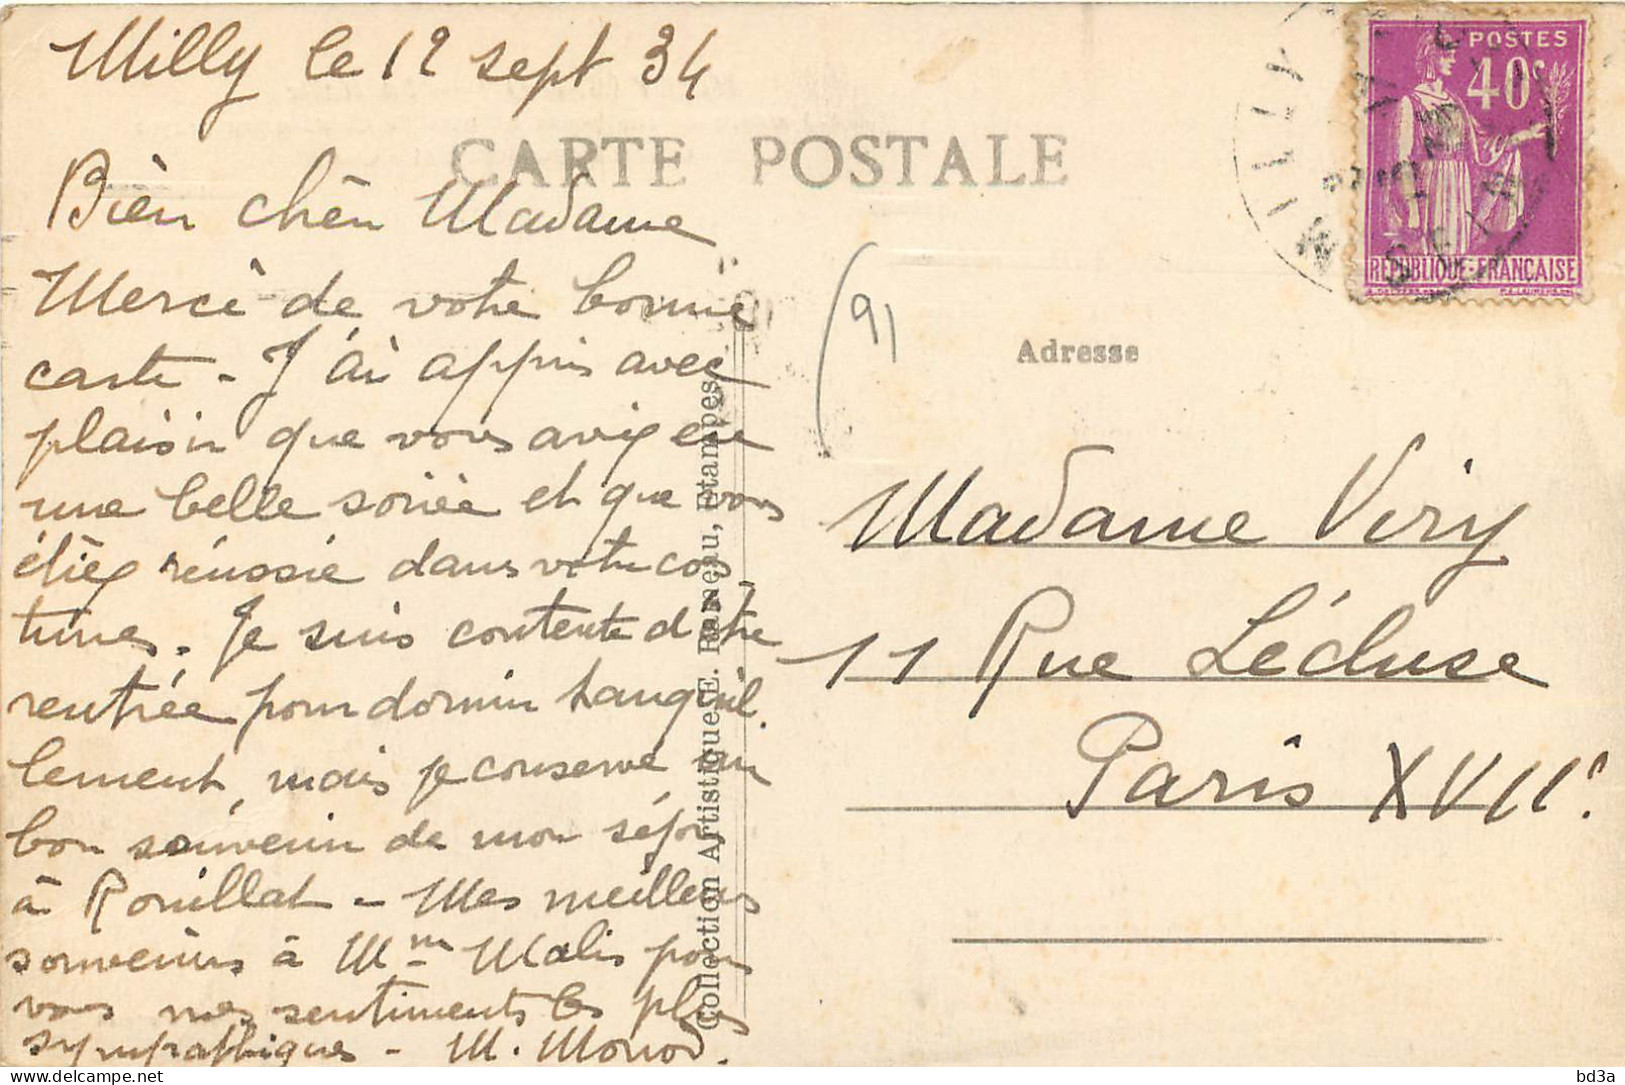 Milly le 12 sept 34
CARTE POSTALE
Bien chère Madame
Merci de votre bonne
carte - J'ai appris avec
plaisir que vous aviez eu
une belle soirée et que vous
étiez réussie dans votre cos
tume. Je suis contente d'être
rentrée pour dormir tranquil.
lement, mais je conserve un
bon souvenir de mon séjour
à Rouillat - Mes meilleurs
souvenirs à Mm Malis pour
vous mes sentiments les plus
sympathiques - M. Monod.
Collection Artistique E. Rameau, Etampes
(91
POSTES
40c
RÉPUBLIQUE-FRANÇAISE
MILLY
Adresse
Madame Viry
11 Rue Lécluse
Paris XVIIe.
bd3a